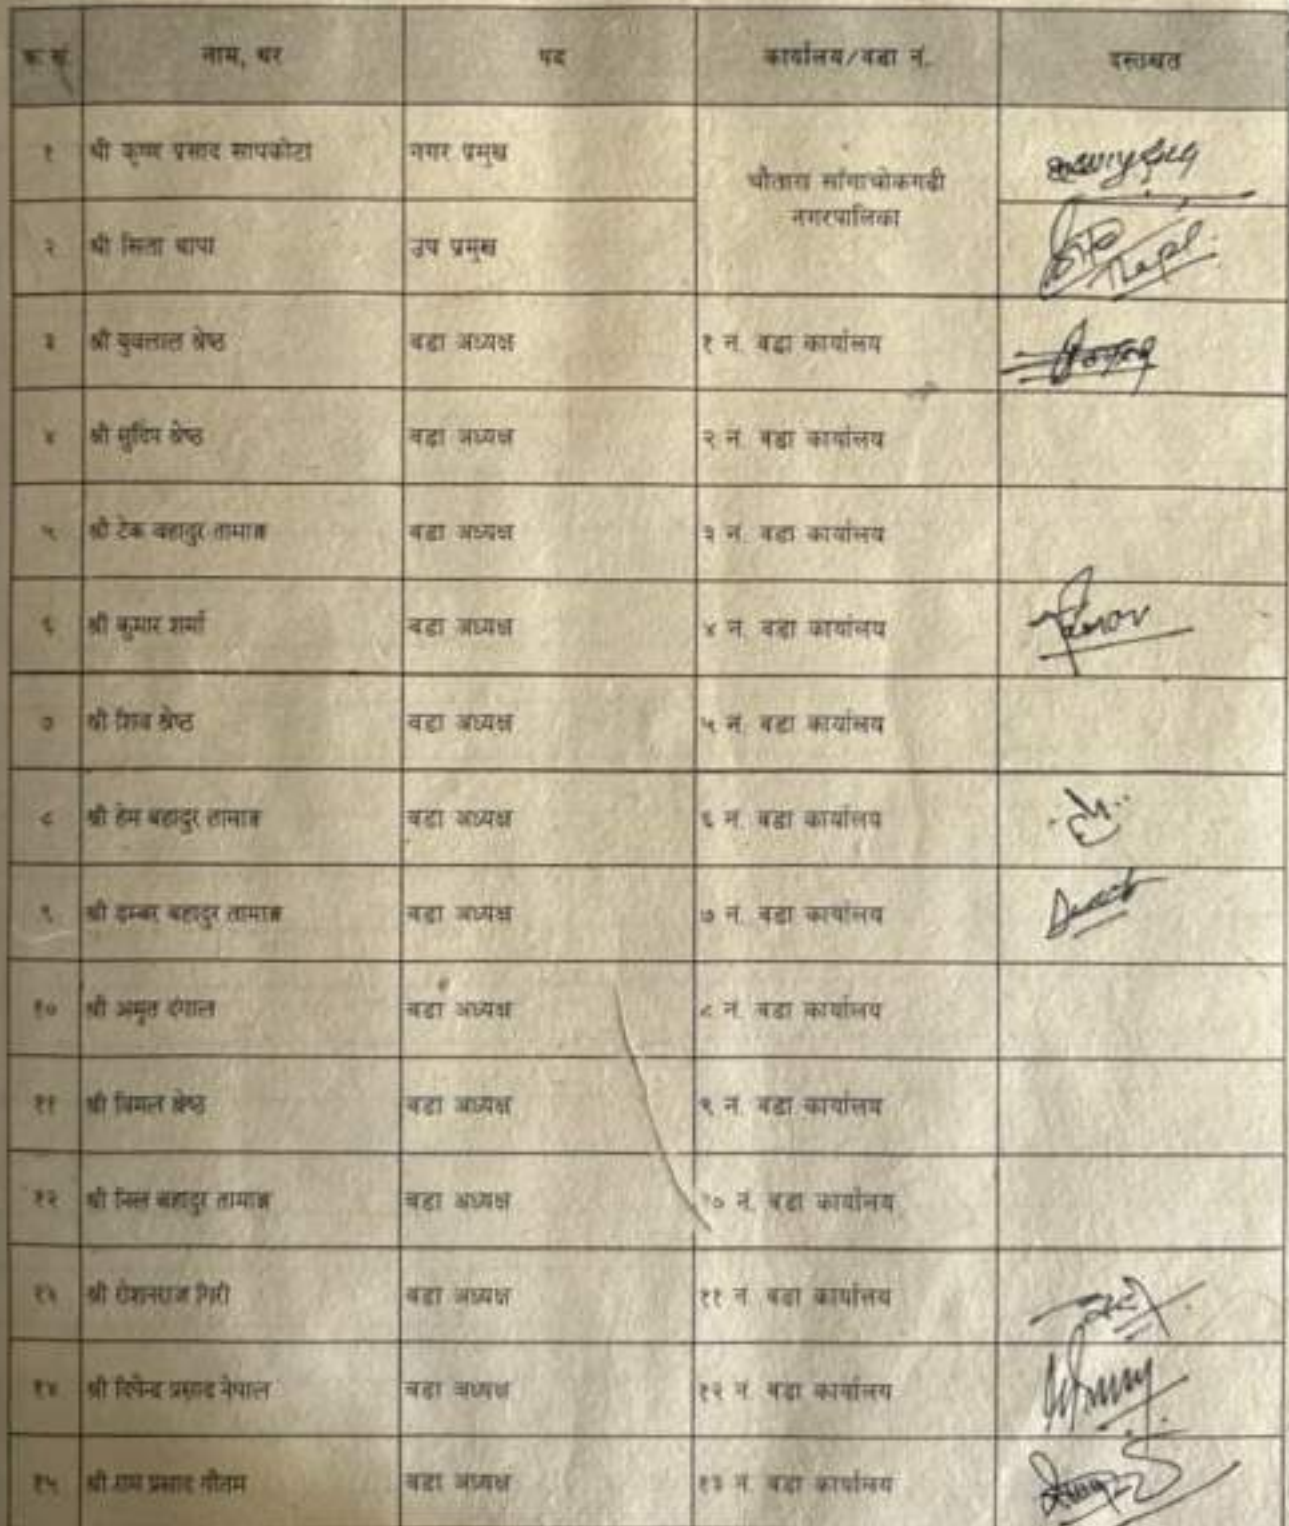 क्र.सं. नाम, थर पद कार्यालय/वडा नं. दस्तखत
१ श्री कृष्ण प्रसाद सापकोटा नगर प्रमुख चौतारा साँगाचोकगढी
नगरपालिका
२ श्री सिता थापा उप प्रमुख
३ श्री युवलाल श्रेष्ठ वडा अध्यक्ष १ नं. वडा कार्यालय
४ श्री सुदिप श्रेष्ठ वडा अध्यक्ष २ नं. वडा कार्यालय
५ श्री टेक बहादुर तामाङ वडा अध्यक्ष ३ नं. वडा कार्यालय
६ श्री कुमार शर्मा वडा अध्यक्ष ४ नं. वडा कार्यालय
७ श्री शिव श्रेष्ठ वडा अध्यक्ष ५ नं. वडा कार्यालय
८ श्री हेम बहादुर तामाङ वडा अध्यक्ष ६ नं. वडा कार्यालय
९ श्री डम्बर बहादुर तामाङ वडा अध्यक्ष ७ नं. वडा कार्यालय
१० श्री अमृत दंगाल वडा अध्यक्ष ८ नं. वडा कार्यालय
११ श्री विमल श्रेष्ठ वडा अध्यक्ष ९ नं. वडा कार्यालय
१२ श्री बहादुर तामाङ वडा अध्यक्ष १० नं. वडा कार्यालय
१३ श्री रोशनराज गिरी वडा अध्यक्ष ११ नं. वडा कार्यालय
१४ श्री दिपेन्द्र प्रसाद नेपाल वडा अध्यक्ष १२ नं. वडा कार्यालय
१५ श्री राम प्रसाद गौतम वडा अध्यक्ष १३ नं. वडा कार्यालय